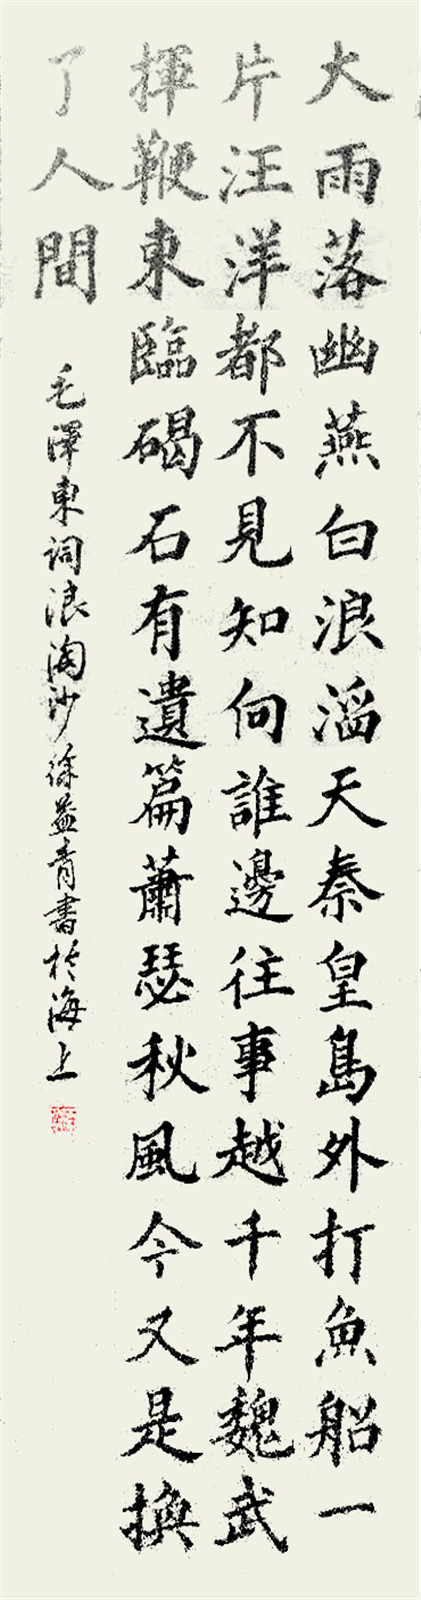 大雨落幽燕白浪滔天秦皇島外打魚船一
片汪洋都不見知向誰邊往事越千年魏武
揮鞭東臨碣石有遺篇蕭瑟秋風今又是換
了人間
毛澤東詞浪淘沙徐益青書於海上